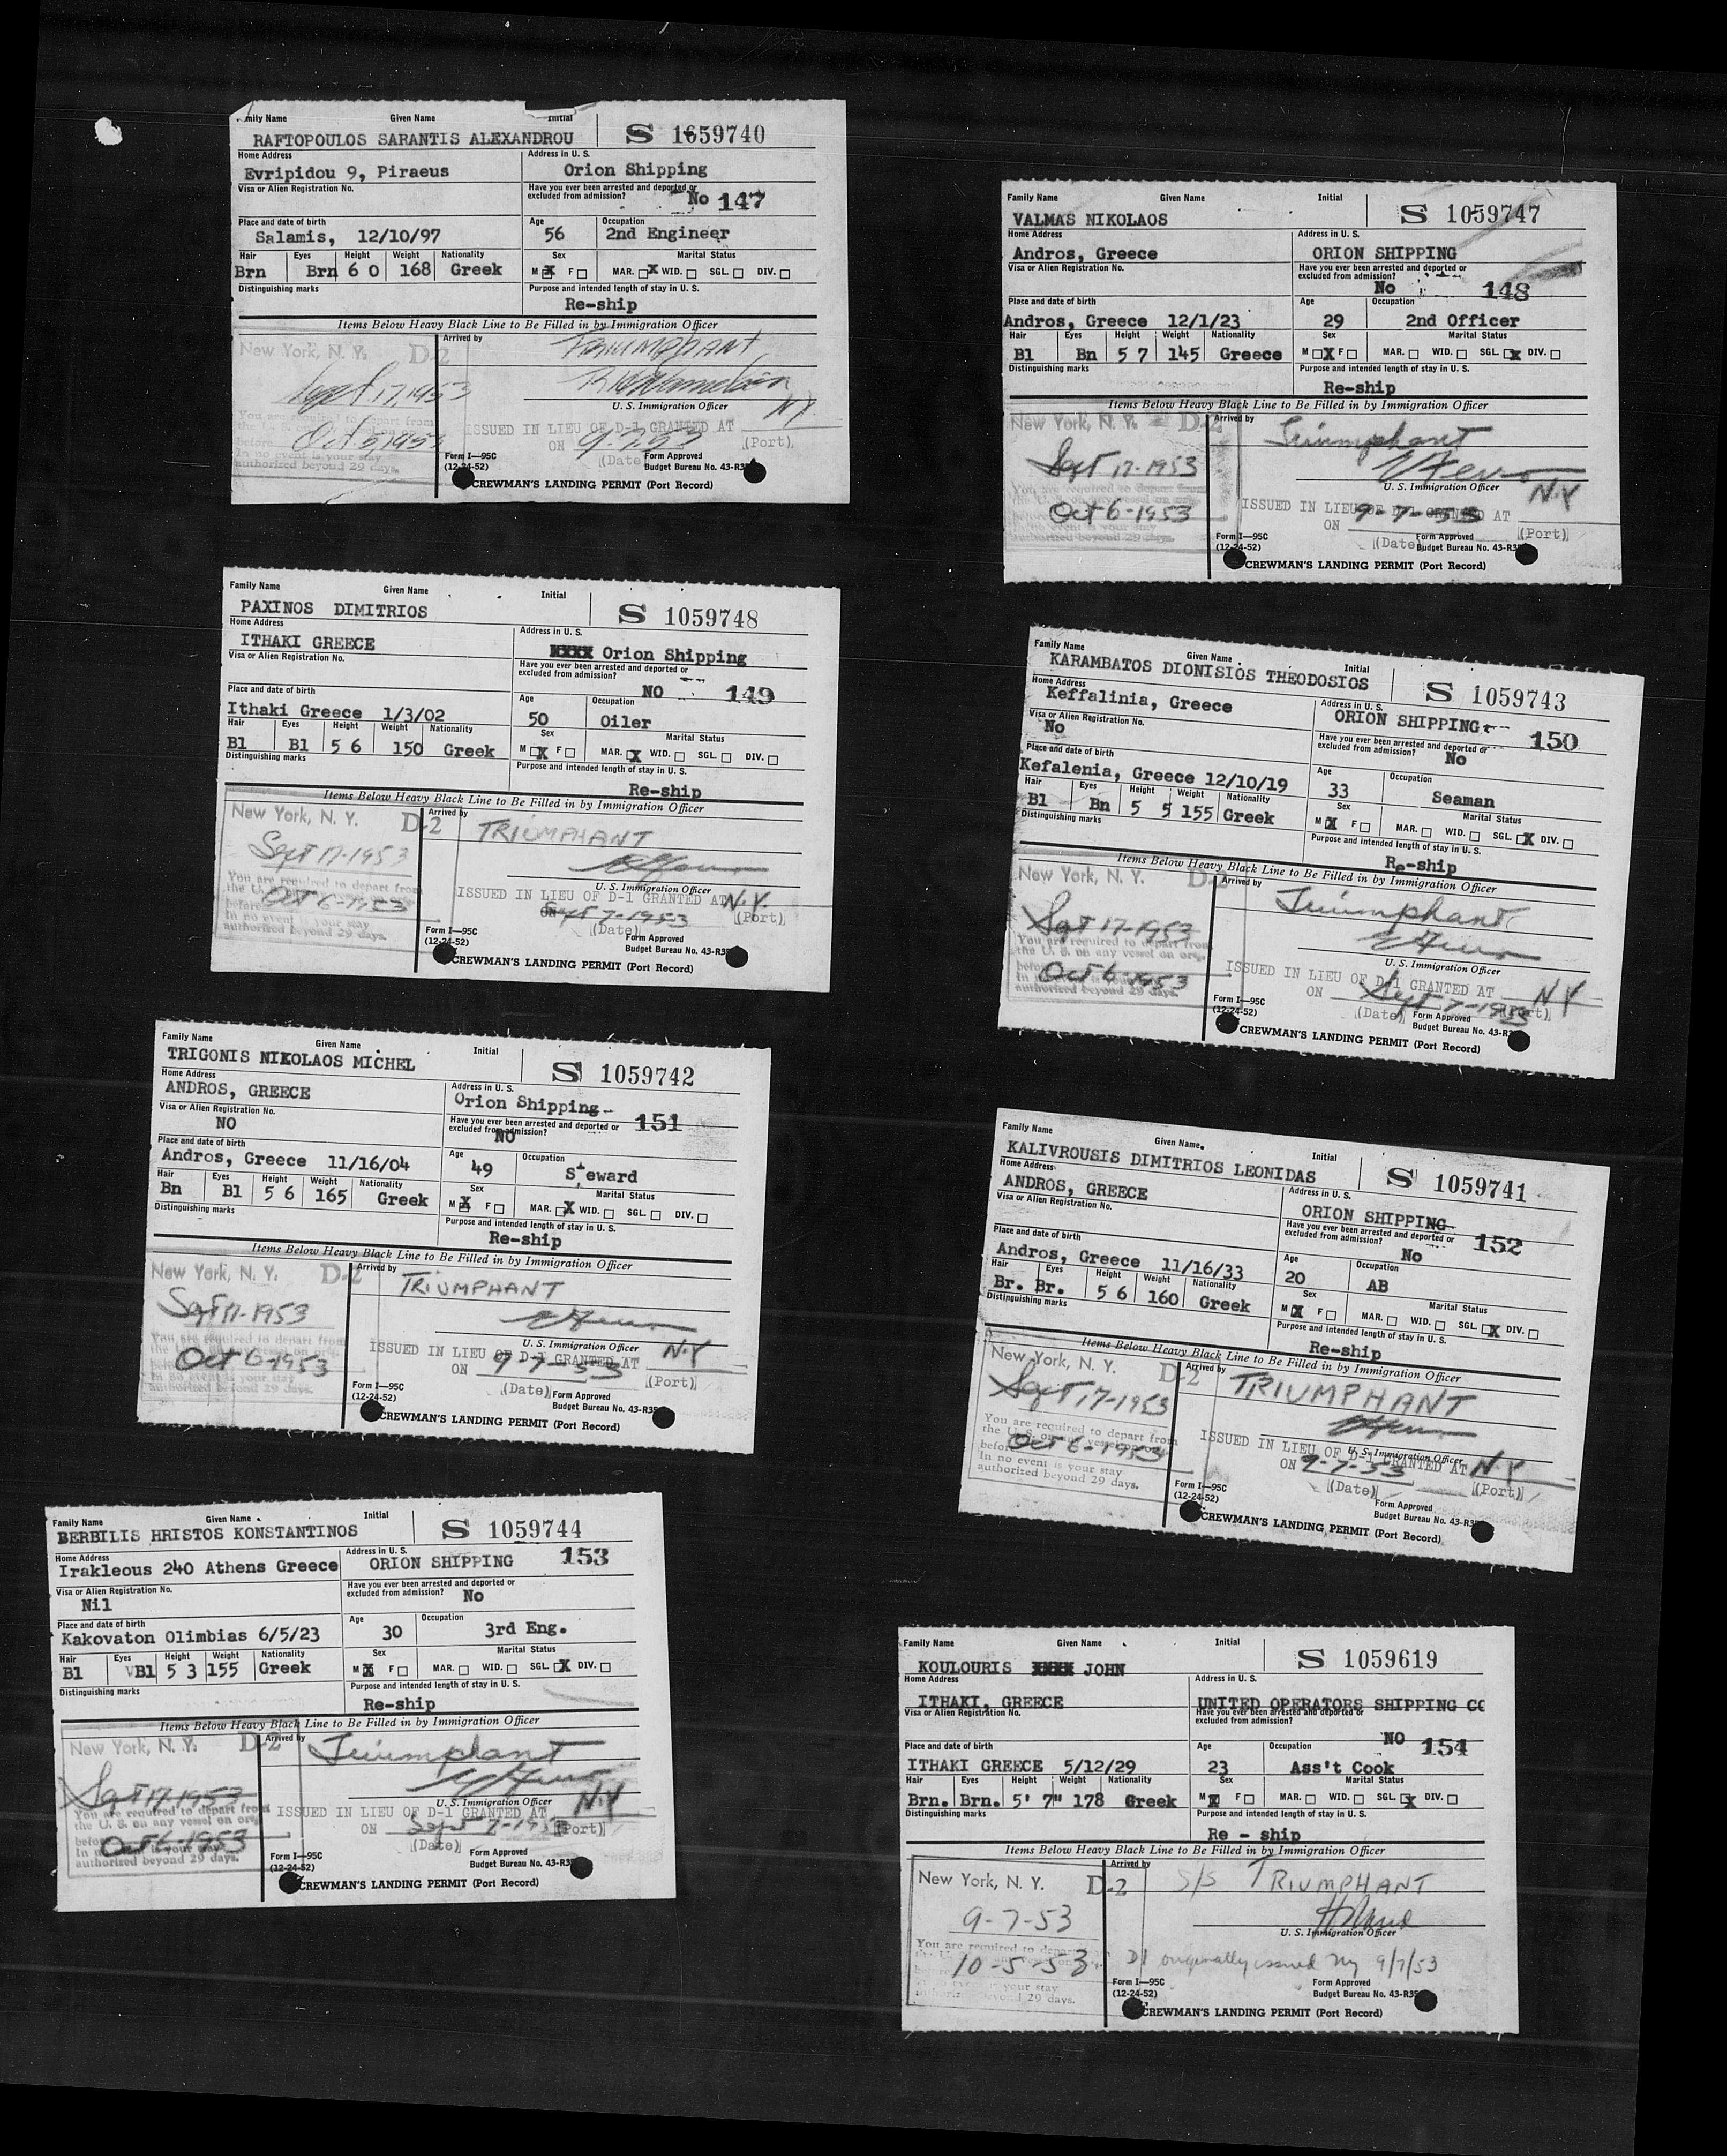 Family Name Given Name Initial
RAFTOPOULOS SARANTIS ALEXANDROU S 1659740
Home Address Address in U. S.
Evripidou 9, Piraeus Orion Shipping
Visa or Alien Registration No. Have you ever been arrested and deported or excluded from admission? No 147
Place and date of birth Age Occupation
Salamis, 12/10/97 56 2nd Engineer
Hair Eyes Height Weight Nationality Sex Marital Status
Brn Brn 6 0 168 Greek M X F MAR. X WID. SGL. DIV.
Distinguishing marks Purpose and intended length of stay in U. S.
Re-ship
Items Below Heavy Black Line to Be Filled in by Immigration Officer
New York, N. Y. D-2 Arrived by TRIUMPHANT
Sept 17, 1953
U. S. Immigration Officer
You are required to depart from the U. S. on
before Oct 5, 1953
In no event is your stay authorized beyond 29 days.
ISSUED IN LIEU OF D-1 GRANTED AT NY
ON 9-7-53 (Port)
(Date)
Form I—95C (12-24-52) Form Approved Budget Bureau No. 43-R3
CREWMAN'S LANDING PERMIT (Port Record)
Family Name Given Name Initial
VALMAS NIKOLAOS S 1059747
Home Address Address in U. S.
Andros, Greece ORION SHIPPING
Visa or Alien Registration No. Have you ever been arrested and deported or excluded from admission? No 148
Place and date of birth Age Occupation
Andros, Greece 12/1/23 29 2nd Officer
Hair Eyes Height Weight Nationality Sex Marital Status
Bl Bn 5 7 145 Greece M X F MAR. WID. SGL. X DIV.
Distinguishing marks Purpose and intended length of stay in U. S.
Re-ship
Items Below Heavy Black Line to Be Filled in by Immigration Officer
New York, N. Y. D-2 Arrived by Triumphant
Sept 17-1953
U. S. Immigration Officer
Oct 6-1953
authorized beyond 29 days.
ISSUED IN LIEU OF D-1 GRANTED AT N.Y
ON 9-7-53 (Port)
(Date)
Form I—95C (12-24-52) Form Approved Budget Bureau No. 43-R3
CREWMAN'S LANDING PERMIT (Port Record)
Family Name Given Name Initial
PAXINOS DIMITRIOS S 1059748
Home Address Address in U. S.
ITHAKI GREECE XXXX Orion Shipping
Visa or Alien Registration No. Have you ever been arrested and deported or excluded from admission? NO 149
Place and date of birth Age Occupation
Ithaki Greece 1/3/02 50 Oiler
Hair Eyes Height Weight Nationality Sex Marital Status
Bl Bl 5 6 150 Greek M X F MAR. X WID. SGL. DIV.
Distinguishing marks Purpose and intended length of stay in U. S.
Re-ship
Items Below Heavy Black Line to Be Filled in by Immigration Officer
New York, N. Y. D-2 Arrived by TRIUMPHANT
Sept 17-1953
U. S. Immigration Officer
You are required to depart from the U. S.
before Oct 6-1953
In no event is your stay authorized beyond 29 days.
ISSUED IN LIEU OF D-1 GRANTED AT N.Y.
ON Sept 7-1953 (Port)
(Date)
Form I—95C (12-24-52) Form Approved Budget Bureau No. 43-R3
CREWMAN'S LANDING PERMIT (Port Record)
Family Name Given Name Initial
KARAMBATOS DIONISIOS THEODOSIOS S 1059743
Home Address Address in U. S.
Keffalinia, Greece ORION SHIPPING 150
Visa or Alien Registration No. Have you ever been arrested and deported or excluded from admission?
No No
Place and date of birth Age Occupation
Kefalenia, Greece 12/10/19 33 Seaman
Hair Eyes Height Weight Nationality Sex Marital Status
Bl Bn 5 5 155 Greek M X F MAR. WID. SGL. X DIV.
Distinguishing marks Purpose and intended length of stay in U. S.
Re-ship
Items Below Heavy Black Line to Be Filled in by Immigration Officer
New York, N. Y. D-2 Arrived by Triumphant
Sept 17-1953
U. S. Immigration Officer
You are required to depart from the U. S. on any vessel on orig.
before Oct 6-1953
authorized beyond 29 days.
ISSUED IN LIEU OF D-1 GRANTED AT NY
ON Sept 7-1953 (Port)
(Date)
Form I—95C (12-24-52) Form Approved Budget Bureau No. 43-R3
CREWMAN'S LANDING PERMIT (Port Record)
Family Name Given Name Initial
TRIGONIS NIKOLAOS MICHEL S 1059742
Home Address Address in U. S.
ANDROS, GREECE Orion Shipping 151
Visa or Alien Registration No. Have you ever been arrested and deported or excluded from admission?
NO NO
Place and date of birth Age Occupation
Andros, Greece 11/16/04 49 Steward
Hair Eyes Height Weight Nationality Sex Marital Status
Bn Bl 5 6 165 Greek M X F MAR. X WID. SGL. DIV.
Distinguishing marks Purpose and intended length of stay in U. S.
Re-ship
Items Below Heavy Black Line to Be Filled in by Immigration Officer
New York, N. Y. D-2 Arrived by TRIUMPHANT
Sept 17-1953
U. S. Immigration Officer
You are required to depart from
Oct 6-1953
In no event is your stay authorized beyond 29 days.
ISSUED IN LIEU OF D-1 GRANTED AT N.Y
ON 9-7-53 (Port)
(Date)
Form I—95C (12-24-52) Form Approved Budget Bureau No. 43-R35
CREWMAN'S LANDING PERMIT (Port Record)
Family Name Given Name Initial
KALIVROUSIS DIMITRIOS LEONIDAS S 1059741
Home Address Address in U. S.
ANDROS, GREECE ORION SHIPPING
Visa or Alien Registration No. Have you ever been arrested and deported or excluded from admission? No 152
Place and date of birth Age Occupation
Andros, Greece 11/16/33 20 AB
Hair Eyes Height Weight Nationality Sex Marital Status
Br. Br. 5 6 160 Greek M X F MAR. WID. SGL. X DIV.
Distinguishing marks Purpose and intended length of stay in U. S.
Re-ship
Items Below Heavy Black Line to Be Filled in by Immigration Officer
New York, N. Y. D-2 Arrived by TRIUMPHANT
Sept 17-1953
U. S. Immigration Officer
You are required to depart from the U. S. on any vessel
before Oct 6-1953
In no event is your stay authorized beyond 29 days.
ISSUED IN LIEU OF D-1 GRANTED AT NY
ON 9-7-53 (Port)
(Date)
Form I—95C (12-24-52) Form Approved Budget Bureau No. 43-R3
CREWMAN'S LANDING PERMIT (Port Record)
Family Name Given Name Initial
BERBILIS HRISTOS KONSTANTINOS S 1059744
Home Address Address in U. S.
Irakleous 240 Athens Greece ORION SHIPPING 153
Visa or Alien Registration No. Have you ever been arrested and deported or excluded from admission?
Nil No
Place and date of birth Age Occupation
Kakovaton Olimbias 6/5/23 30 3rd Eng.
Hair Eyes Height Weight Nationality Sex Marital Status
Bl Bl 5 3 155 Greek M X F MAR. WID. SGL. X DIV.
Distinguishing marks Purpose and intended length of stay in U. S.
Re-ship
Items Below Heavy Black Line to Be Filled in by Immigration Officer
New York, N. Y. D-2 Arrived by Triumphant
Sept 17-1953
U. S. Immigration Officer
You are required to depart from the U. S. on any vessel on orig.
before Oct 6-1953
authorized beyond 29 days.
ISSUED IN LIEU OF D-1 GRANTED AT N.Y
ON Sept 7-1953 (Port)
(Date)
Form I—95C (12-24-52) Form Approved Budget Bureau No. 43-R3
CREWMAN'S LANDING PERMIT (Port Record)
Family Name Given Name Initial
KOULOURIS XXXX JOHN S 1059619
Home Address Address in U. S.
ITHAKI, GREECE UNITED OPERATORS SHIPPING CO
Visa or Alien Registration No. Have you ever been arrested and deported or excluded from admission?
NO 154
Place and date of birth Age Occupation
ITHAKI GREECE 5/12/29 23 Ass't Cook
Hair Eyes Height Weight Nationality Sex Marital Status
Brn. Brn. 5' 7" 178 Greek M X F MAR. WID. SGL. X DIV.
Distinguishing marks Purpose and intended length of stay in U. S.
Re - ship
Items Below Heavy Black Line to Be Filled in by Immigration Officer
New York, N. Y. D-2 Arrived by S/S TRIUMPHANT
9-7-53
U. S. Immigration Officer
You are required to depart
10-5-53
your stay
beyond 29 days.
D1 originally issued NY 9/7/53
Form I—95C (12-24-52) Form Approved Budget Bureau No. 43-R35
CREWMAN'S LANDING PERMIT (Port Record)